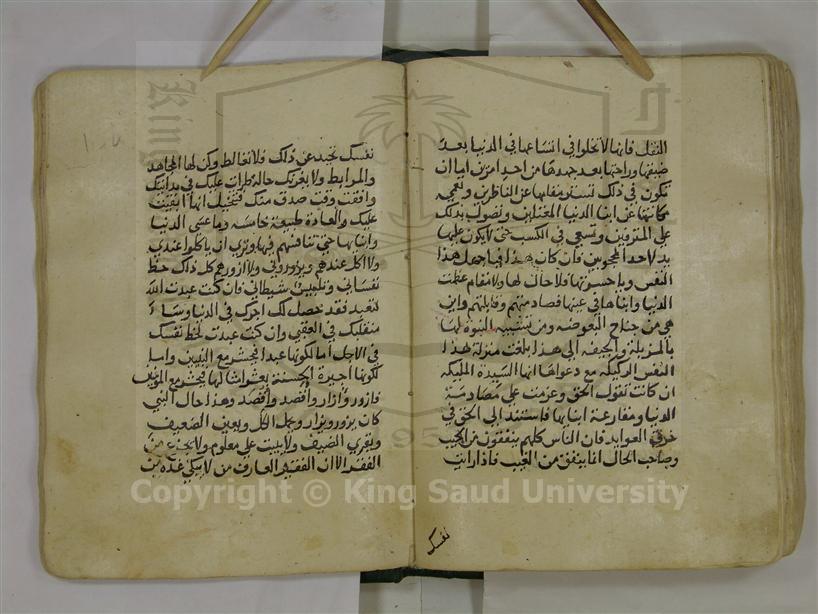 النقل فانها لا تخلوا في اتساعها في الدنيا بعد
ضيقها وراحتها بعد جهدها من احد امرين اما ان
تكون في ذلك تستر مقامها عن الناظرين وتعمى
مكانتها عن ابنا الدنيا المغترين وتصول بذلك
على المترفين وتسعى في الكسب حتى لا يكون عليها
يد لاحد المحجوبين فان كان هذا في اجهل هذا
النفس ويا حسرتها فلا حال لها ولا مقام عظمت
الدنيا وابناها في عينها فصادمتهم وقابلتهم واين
هي من جناح البعوضه ومن تشبيه النبوة لها
بالمزبلة والجيفه الى هذا بلغت منزلة هذا
النفس الركيكه مع دعواها انها السيدة المليكه
ان كانت تقول الحق وعزمت على مصادمة
الدنيا ومقارعة ابنايها فاستند الى الحق في
خرق العوايد فان الناس كلهم ينفقون من الجيب
وصاحب الحال انما ينفق من الغيب فاذا رايت
نفسك
نفسك تحيد عن ذلك فلا تغالط وكن لها المجاهد
والمرابط ولا يغرنك حالة طرات عليك في بدايتك
وافقت وقت صدق منك فتتخيل انها ابقيت
عليك والعادة طبيعة خامسه وما عسى الدنيا
وابنايها حتى تنافسهم فيها وترى ان ياكلوا عندي
ولا اكل عندهم ويزوروني ولا ازورهم كل ذلك حظ
نفساني وتلبيس شيطاني فان كنت عبدت الله
لتعبد فقد حصل لك اجرك في الدنيا وساء
منقلبك في العقبى وان كنت عبدت لحظ نفسك
في الاجل اما لكونها عبدا فتحشر مع النبيين واما
لكونها اجيرة الحسنة بعشر امثالها فيحشر مع المؤمنين
فازور وازار واقصد واقصد وهذا حال النبي
كان يزور ويزار ويحمل الكل ويعين الضعيف
ويقري الضيف ولا يبيت على معلوم ولا يجزع من
الفقد الا ان الفقير والعارف من لا يبكي غده من
Copyright © King Saud University